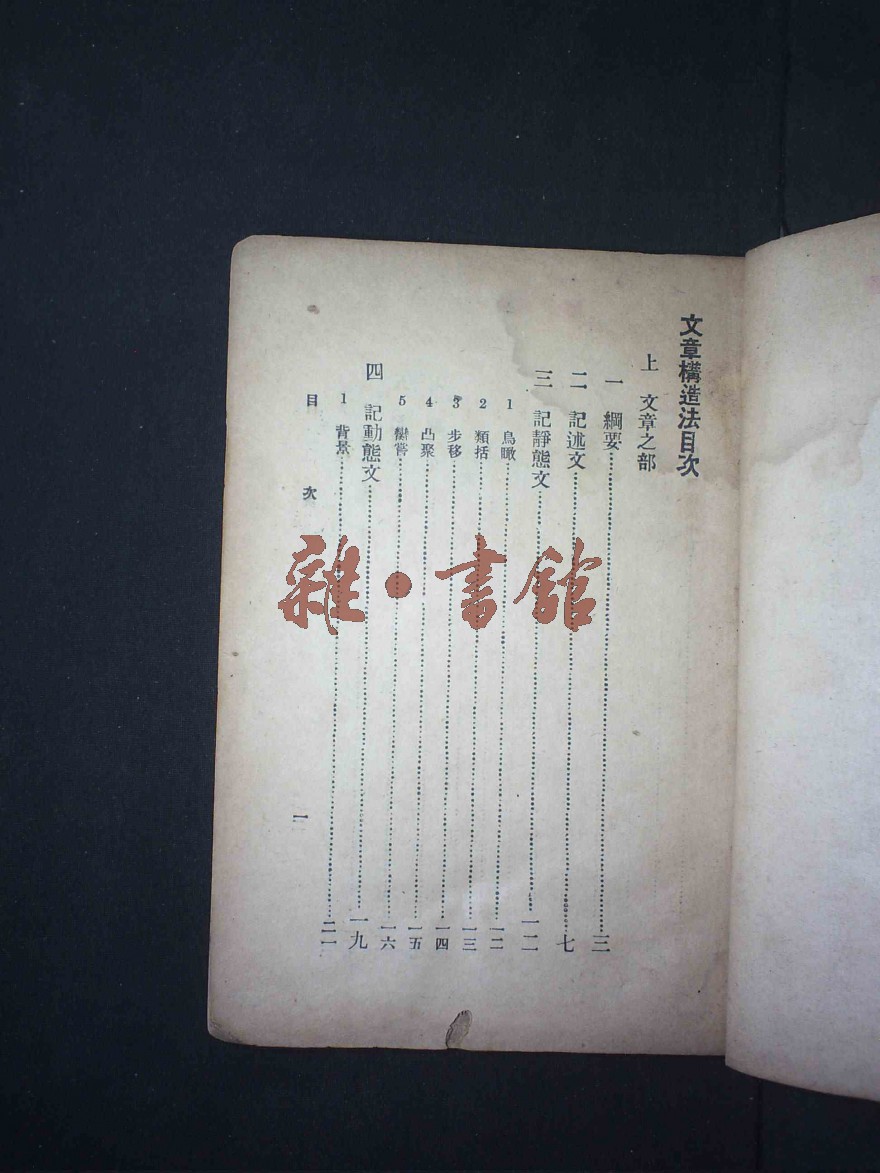 文章構造法目次
上 文章之部
一 綱要……三
二 記述文……七
三 記靜態文……一二
1 鳥瞰……一二
2 類括……一三
3 步移……一四
4 凸聚……一五
5 臠嘗……一六
四 記動態文……一九
1 背景……二一
目次 一
雜·書館